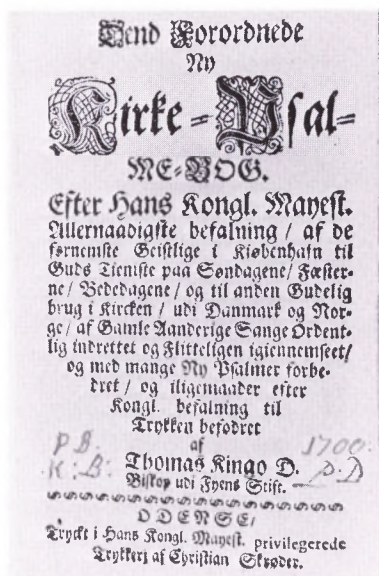 Dend Forordnede
Ny
Kirke-Psal-
ME-BOG.
Efter Hans Kongl. Mayest.
Allernaadigste befalning / af de
førnemste Geistlige i Kiøbenhafn til
Guds Tieniste paa Søndagene / Fæster-
ne / Bededagene / og til anden Gudelig
brug i Kircken / udi Danmark og Nor-
ge / af Gamle Aanderige Sange Ordent-
lig indrettet og Flitteligen igiennemseet /
og med mange Ny Psalmer forbe-
dret / og iligemaader efter
Kongl. befalning til
Trykken befodret
af
P B. 1700.
Thomas Kingo D.
K: B: D. D
Biskop udi Fyens Stift.
ODENSE /
Tryckt i Hans Kongl. Mayest. privilegerede
Trykkerj af Christian Skrøder.